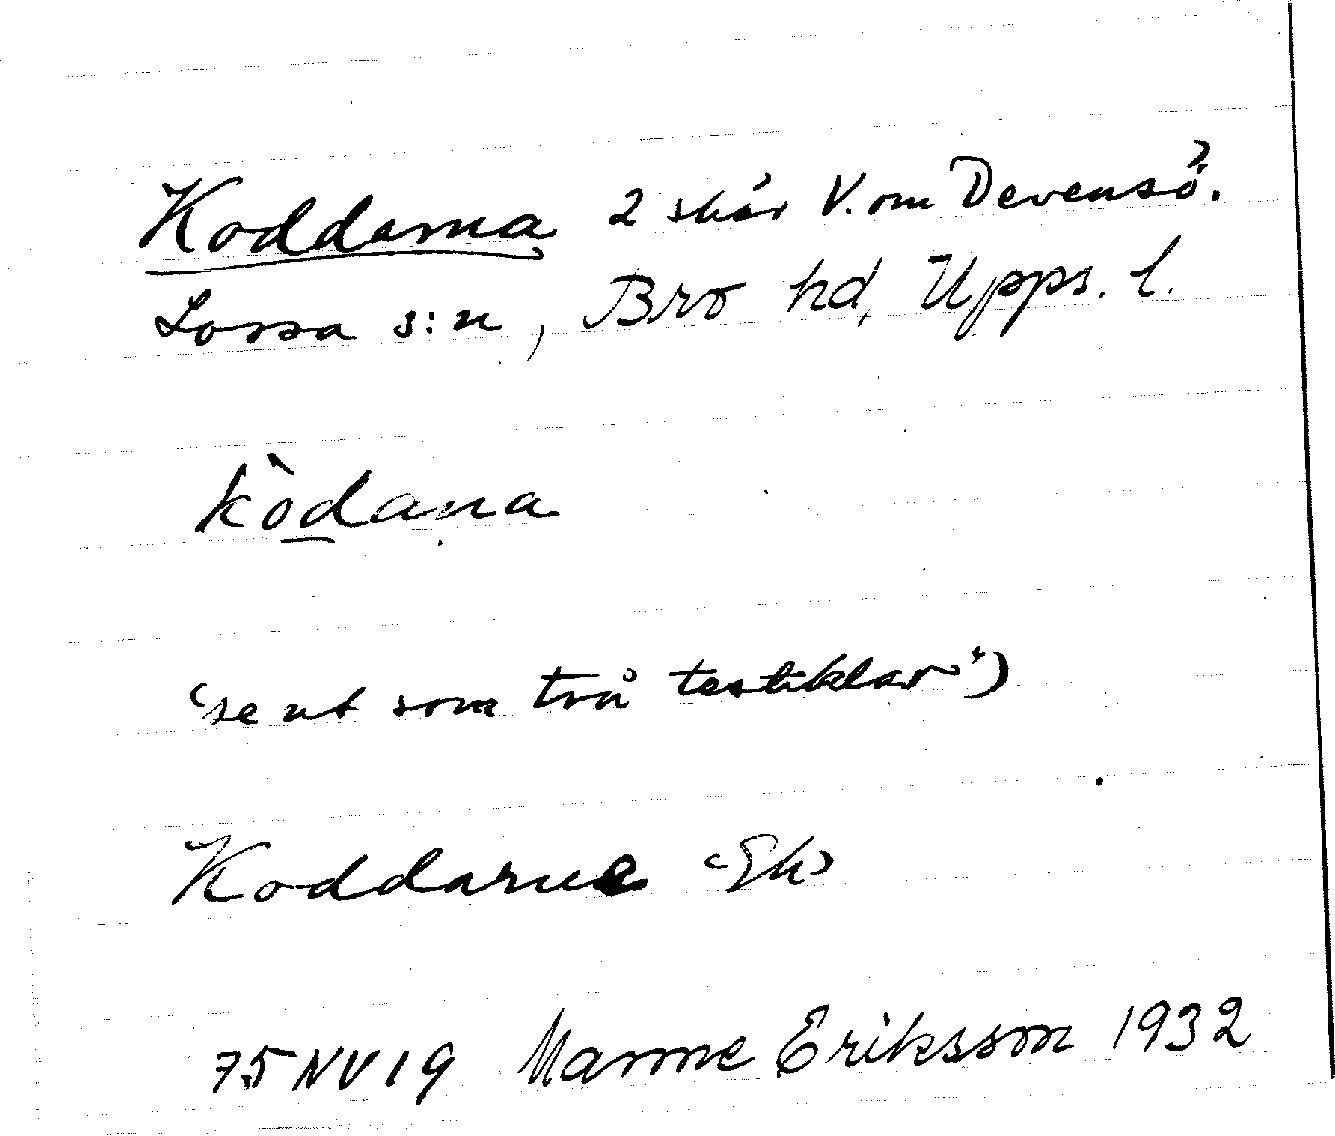 Koddarna 2 skär V. om Devensö.
Lossa s:n, Bro hd, Upps. l.
kòdana
'se ut som två testiklar')
Koddarne <Ek>
75 NV 19 Manne Eriksson 1932